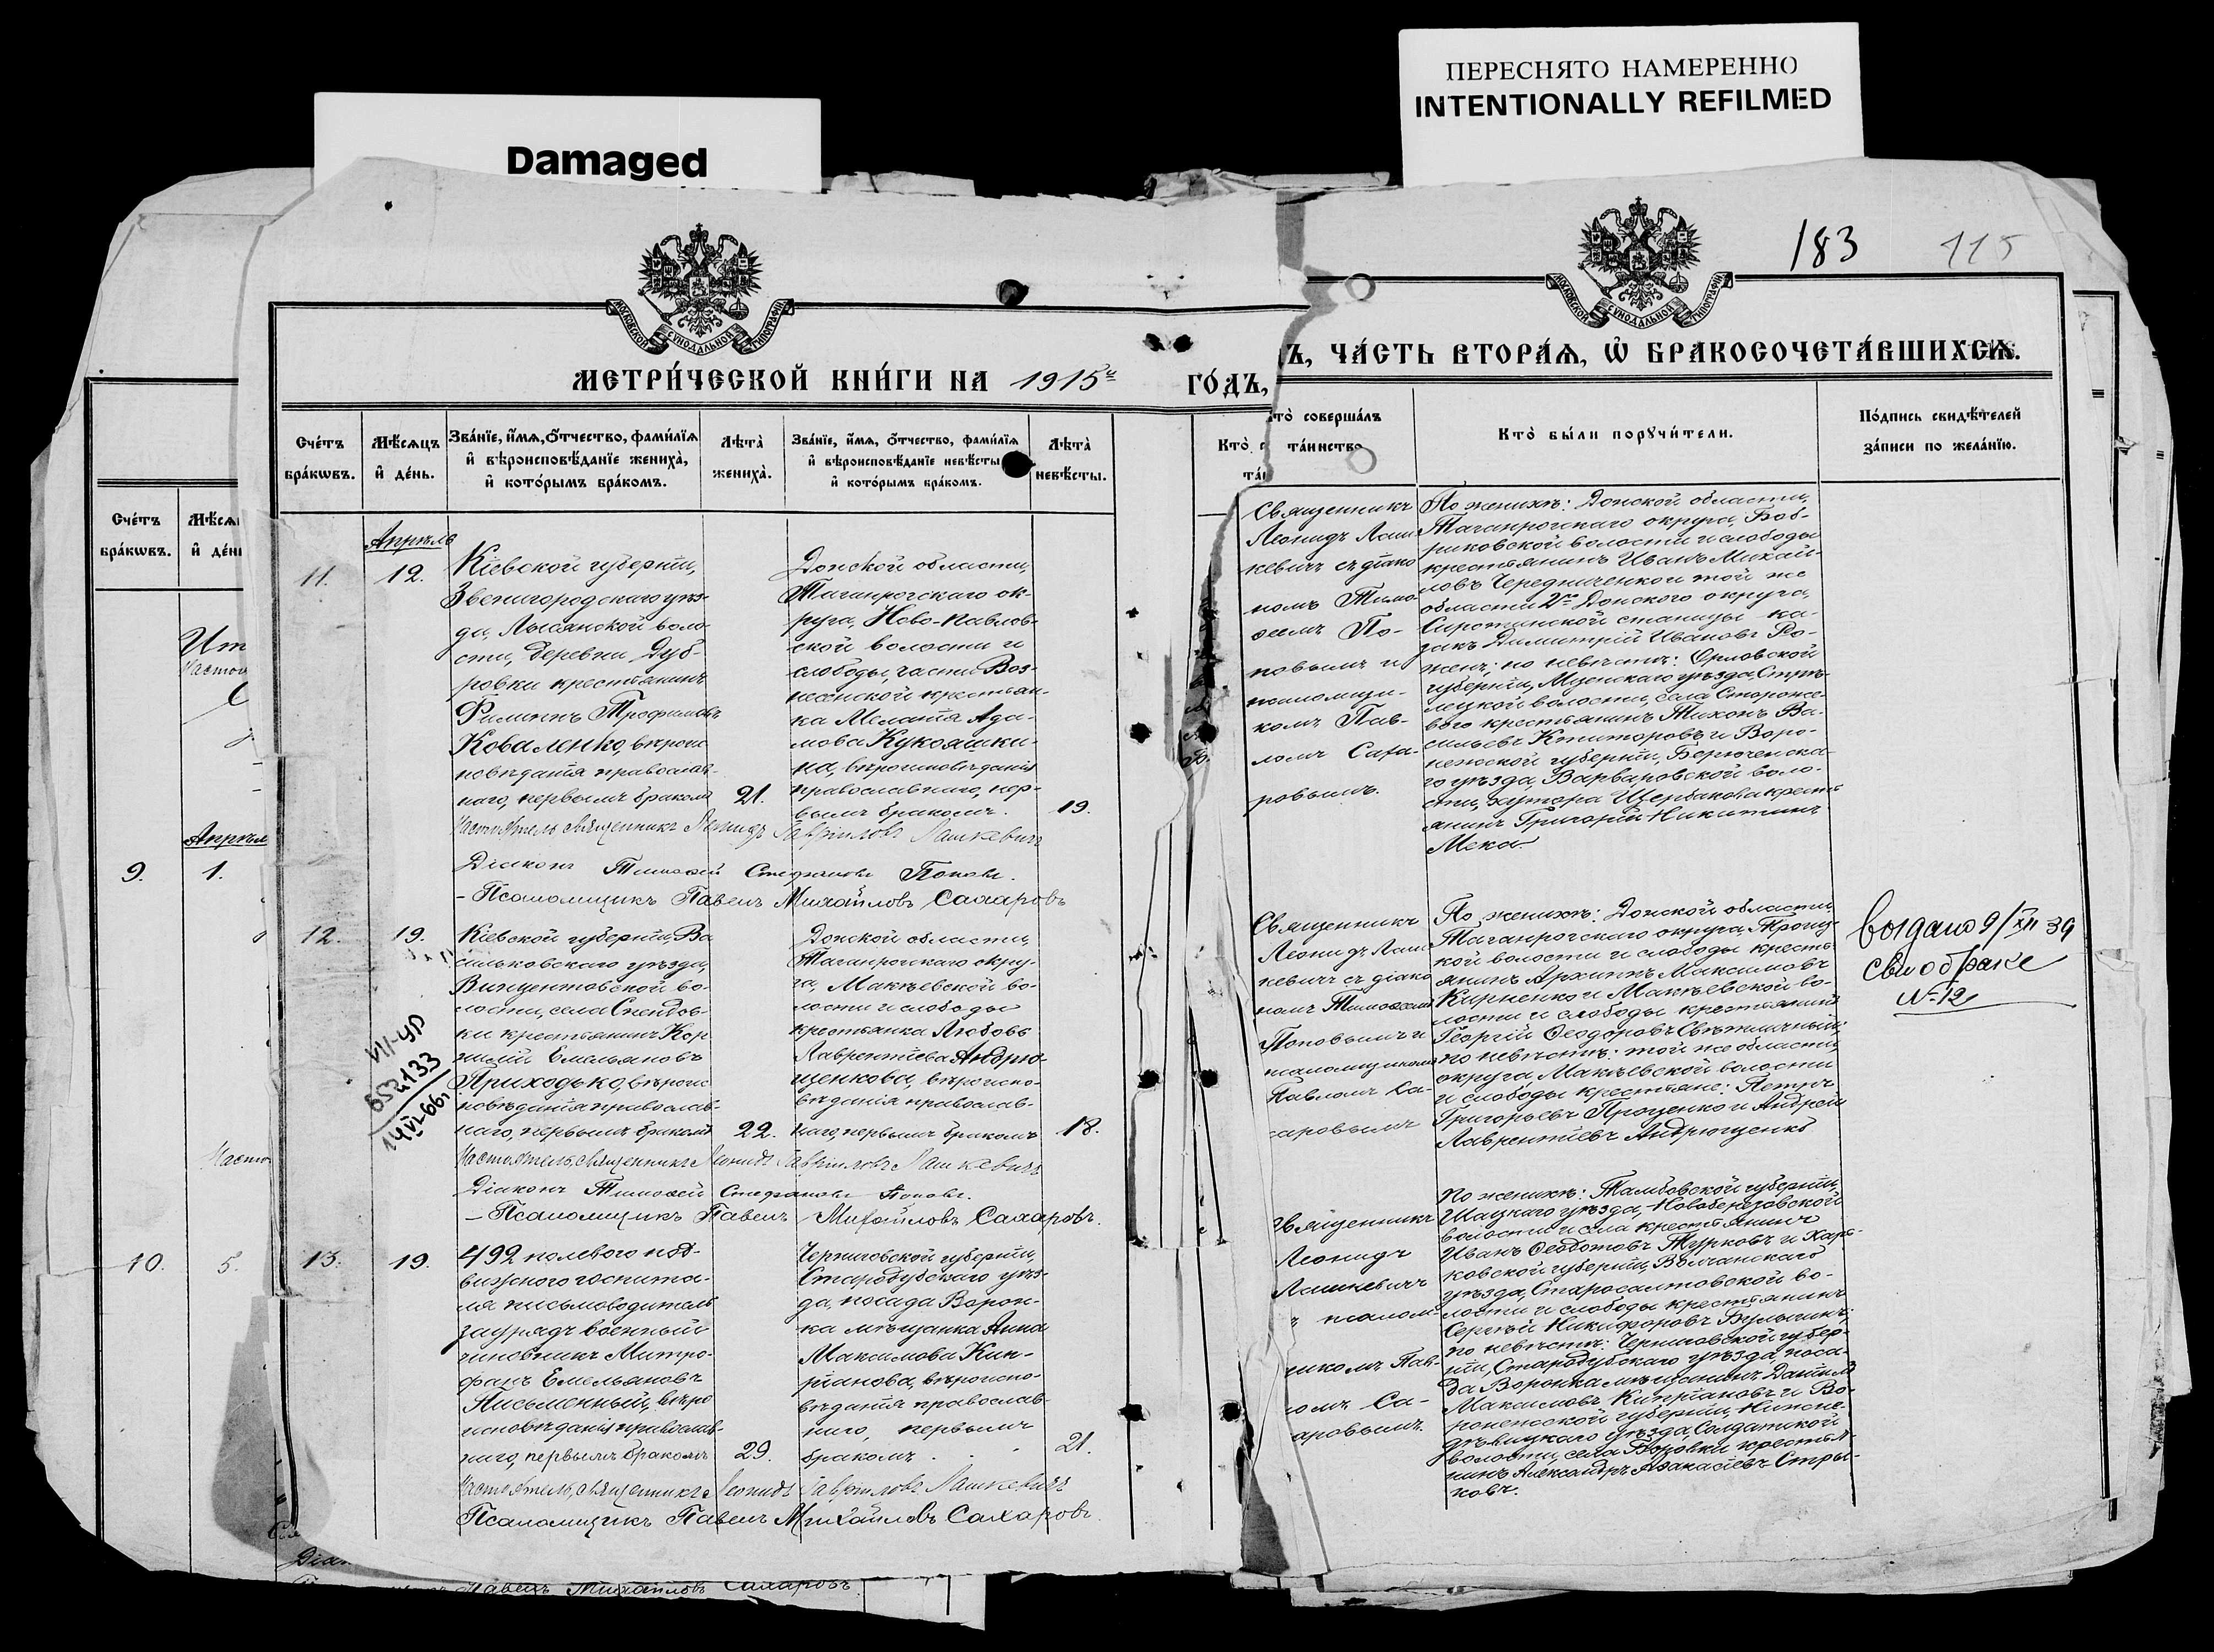 ПЕРЕСНЯТО НАМЕРЕННО
INTENTIONALLY REFILMED
Damaged
183
115
МОСКОВСКОЙ СѴНОДАЛЬНОЙ ТИПОГРАФІИ
МОСКОВСКОЙ СѴНОДАЛЬНОЙ ТИПОГРАФІИ
МЕТРИ́ЧЕСКОЙ КНИ́ГИ НА 1915й ГО́ДЪ,
Ъ, ЧА́СТЬ ВТОРА́Ѧ, Ѡ҆ БРАКОСОЧЕТА́ВШИХСѦ.
Сче́тъ
бра́кѡвъ.
Мѣ́сяцъ
и҆ де́нь.
Зва́нїе, и҆́мѧ, ѻ҆́тчество, фами́лїѧ
и҆ вѣроисповѣ́данїе жениха̀,
и҆ кото́рымъ бра́комъ.
Лѣта̀
жениха̀.
Зва́нїе, и҆́мѧ, ѻ҆́тчество, фами́лїѧ
и҆ вѣроисповѣ́данїе невѣ́сты
и҆ кото́рымъ бра́комъ.
Лѣта̀
невѣ́сты.
Кто̀
то̀ соверша́лъ
та́инство
Кто̀ бы́ли порꙋчи́тели.
По́дпись свидѣ́телей
за́писи по жела́нїю.
Сче́тъ
бра́кѡвъ.
и҆ де́нь
Апрѣль
11.
12.
Кіевской губерніи,
Звенигородскаго уѣз-
да, Лысянской воло-
сти, деревни Дуб-
ровки крестьянинъ
Филиппъ Трофимовъ
Коваленко, вѣроис
повѣданія православ-
наго, первымъ бракомъ
21.
Донской области,
Таганрогскаго ок-
руга, Ново-Павлов-
ской волости и
слободы, части Воз-
несенской крестьян-
ка Меланія Ада-
мова Кукояшки-
на, вѣроисповѣданія
православнаго, пер-
вымъ бракомъ.
19.
Священникъ
Леонидъ Лаш
кевичъ съ діако
номъ Тимо-
ѳеемъ По-
повымъ и
псаломщи-
комъ Пав-
ломъ Саха-
ровымъ.
По женихѣ: Донской области,
Таганрогскаго округа, Боб-
риковской волости и слободы
крестьянинъ Иванъ Михай-
ловъ Чередниченко и той же
области 2го Донского округа,
Сиротинской станицы ка-
закъ Димитрій Ивановъ Ро-
женъ; по невѣстѣ: Орловской
губерніи, Мценскаго уѣзда, Стрѣ-
лецкой волости, села Стороже-
вого крестьянинъ Тихонъ Ва-
сильевъ Ктиторовъ и Воро-
нежской губерніи, Бирюченска-
го уѣзда, Варваровской воло-
сти, хутора Щербакова кресть
янинъ Григорій Никитинъ
Мека.
Настоятель священникъ Леонидъ Гавріиловъ Лашкевичъ
Діаконъ Тимоѳей Стефановъ Поповъ.
- Псаломщикъ Павелъ Михайловъ Сахаровъ
12.
19.
Кіевской губерніи, Ва
сильковскаго уѣзда,
Винцентовской во-
лости, села Снендов-
ки крестьянинъ Кор
нилій Емельяновъ
Приходько, вѣроис
повѣданія православ-
наго, первымъ бракомъ
22.
Донской области,
Таганрогскаго окру-
га, Макѣевской во-
лости и слободы
крестьянка Любовь
Лаврентіева Андрю-
щенкова, вѣроиспо-
вѣданія православ-
наго, первымъ бракомъ
18.
Священникъ
Леонидъ Лаш
кевичъ съ діако
номъ Тимоѳеемъ
Поповымъ и
псаломщикомъ
Павломъ Са-
харовымъ
По женихѣ: Донской области,
Таганрогскаго округа, Троиц-
кой волости и слободы кресть
янинъ Архиппъ Максимовъ
Кирненко и Макѣевской во-
лости и слободы крестьянинъ
Георгій Ѳеодоровъ Свѣтличный;
по невѣстѣ: той же области,
округа, Макѣевской волости
и слободы крестьяне: Петръ
Григорьевъ Проценко и Андрей
Лаврентіевъ Андрющенко
выдано 9/XII 39
св. о браке
№ 12
VII-ЯР
652133
14/VI-66.
Настоятель, священникъ Леонидъ Гавріиловъ Лашкевичъ
Діаконъ Тимоѳей Стефановъ Поповъ.
- Псаломщикъ Павелъ Михайловъ Сахаровъ.
13.
19.
492 полевого под-
вижного госпита-
ля письмоводитель
зауряд военный
чиновникъ Митро-
фанъ Емельяновъ
Письменный, вѣро
исповѣданія православ-
наго, первымъ бракомъ
29.
Черниговской губерніи,
Стародубскаго уѣз-
да, посада Ворон-
ка мѣщанка Анна
Максимова Кип-
ріанова, вѣроиспо-
вѣданія православ-
наго, первымъ
бракомъ
21.
Священникъ
Леонидъ
Лашкевичъ
псалом
щикомъ Пав-
ломъ Са-
харовымъ.
По женихѣ: Тамбовской губерніи,
Шацкаго уѣзда, Новоберезовской
волости и села крестьянинъ
Иванъ Ѳеодотовъ Турковъ и Харь-
ковской губерніи, Волчанскаго
уѣзда, Старосалтовской во-
лости и слободы крестьянинъ
Сергѣй Никифоровъ Булыгинъ;
по невѣстѣ: Черниговской губер-
ніи, Стародубскаго уѣзда, поса-
да Воронка мѣщанинъ Даніилъ
Максимовъ Кипріановъ и Во-
ронежской губерніи, Нижне-
дѣвицкаго уѣзда, Солдатской
волости, села Боровки крестья-
нинъ Александръ Аѳанасіевъ Стры-
ковъ.
Настоятель, священникъ Леонидъ Гавріиловъ Лашкевичъ
Псаломщикъ Павелъ Михайловъ Сахаровъ.
Апрѣл
9.
1.
10.
5.
Павелъ Михайловъ Сахаровъ.